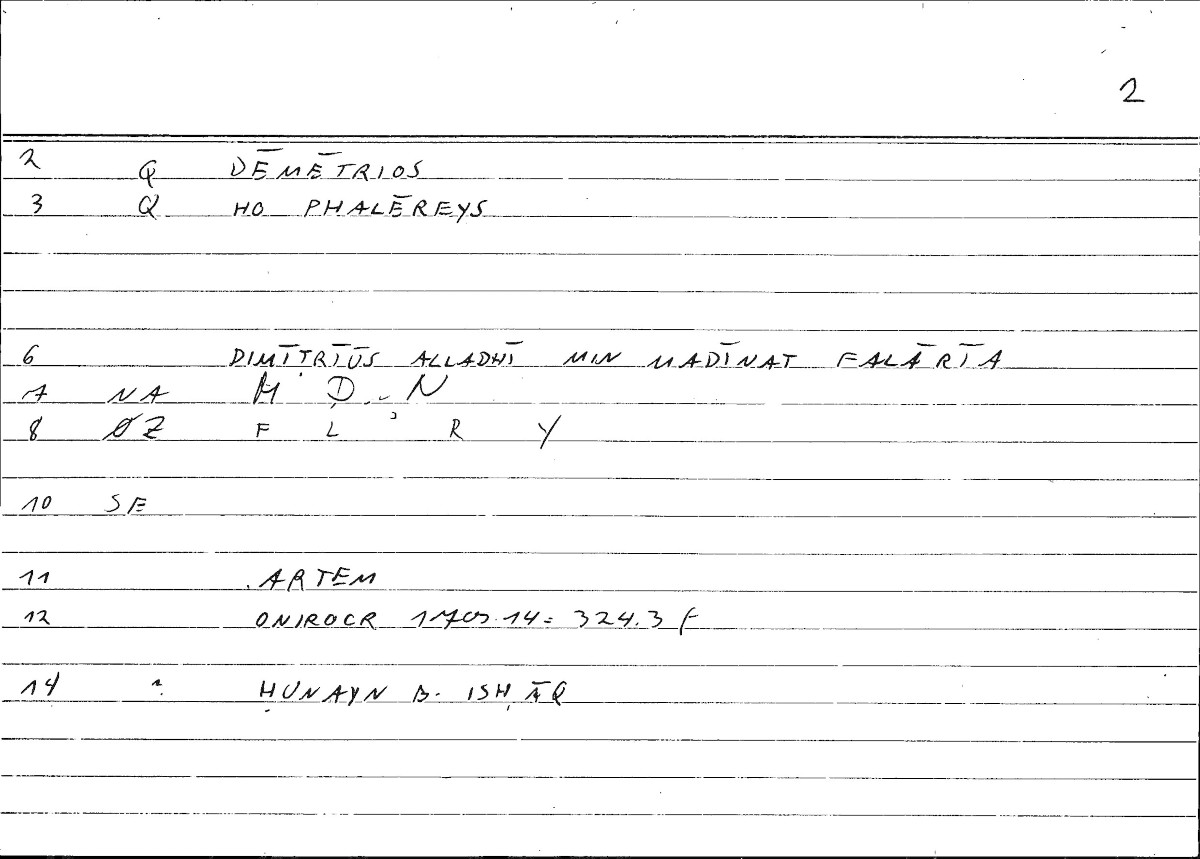 2
2 Q DĒMĒTRIOS
3 Q HO PHALĒREYS
6 DIMĪṬRĪŪS ALLADHĪ MIN MADĪNAT FALĀRĪA
7 NA M D N
8 ØZ F L ʾ R Y
10 SE
11 ARTEM
12 ONIROCR 14 = 324.3 f
14 ḤUNAYN B. ISḤĀQ